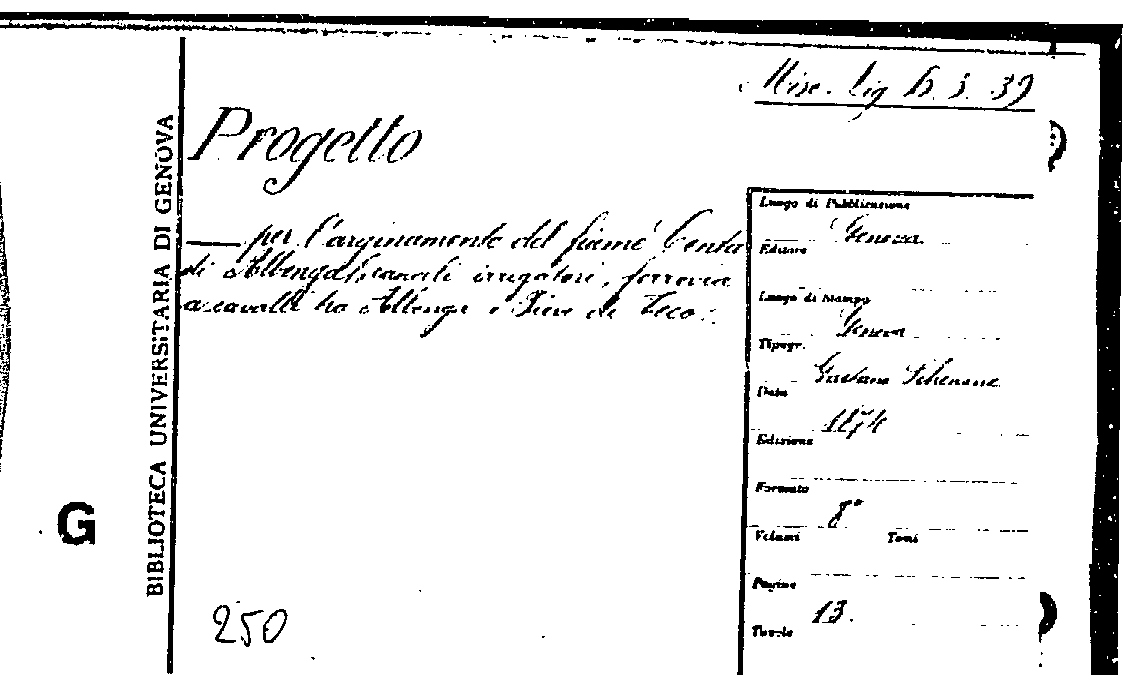 Misc. Lig B. 3. 39
Progetto
— per l'arginamento del fiume Centa
di Albenga, canali irrigatori, ferrovia
a cavalli tra Albenga e Pieve di Teco.
BIBLIOTECA UNIVERSITARIA DI GENOVA
G
250
Luogo di Pubblicazione
Genova
Editore
Luogo di Stampa
Genova
Tipogr.
Gaetano Schenone
Data
1874
Edizione
Formato
8°
Volumi Tomi
Pagine
13.
Tavole